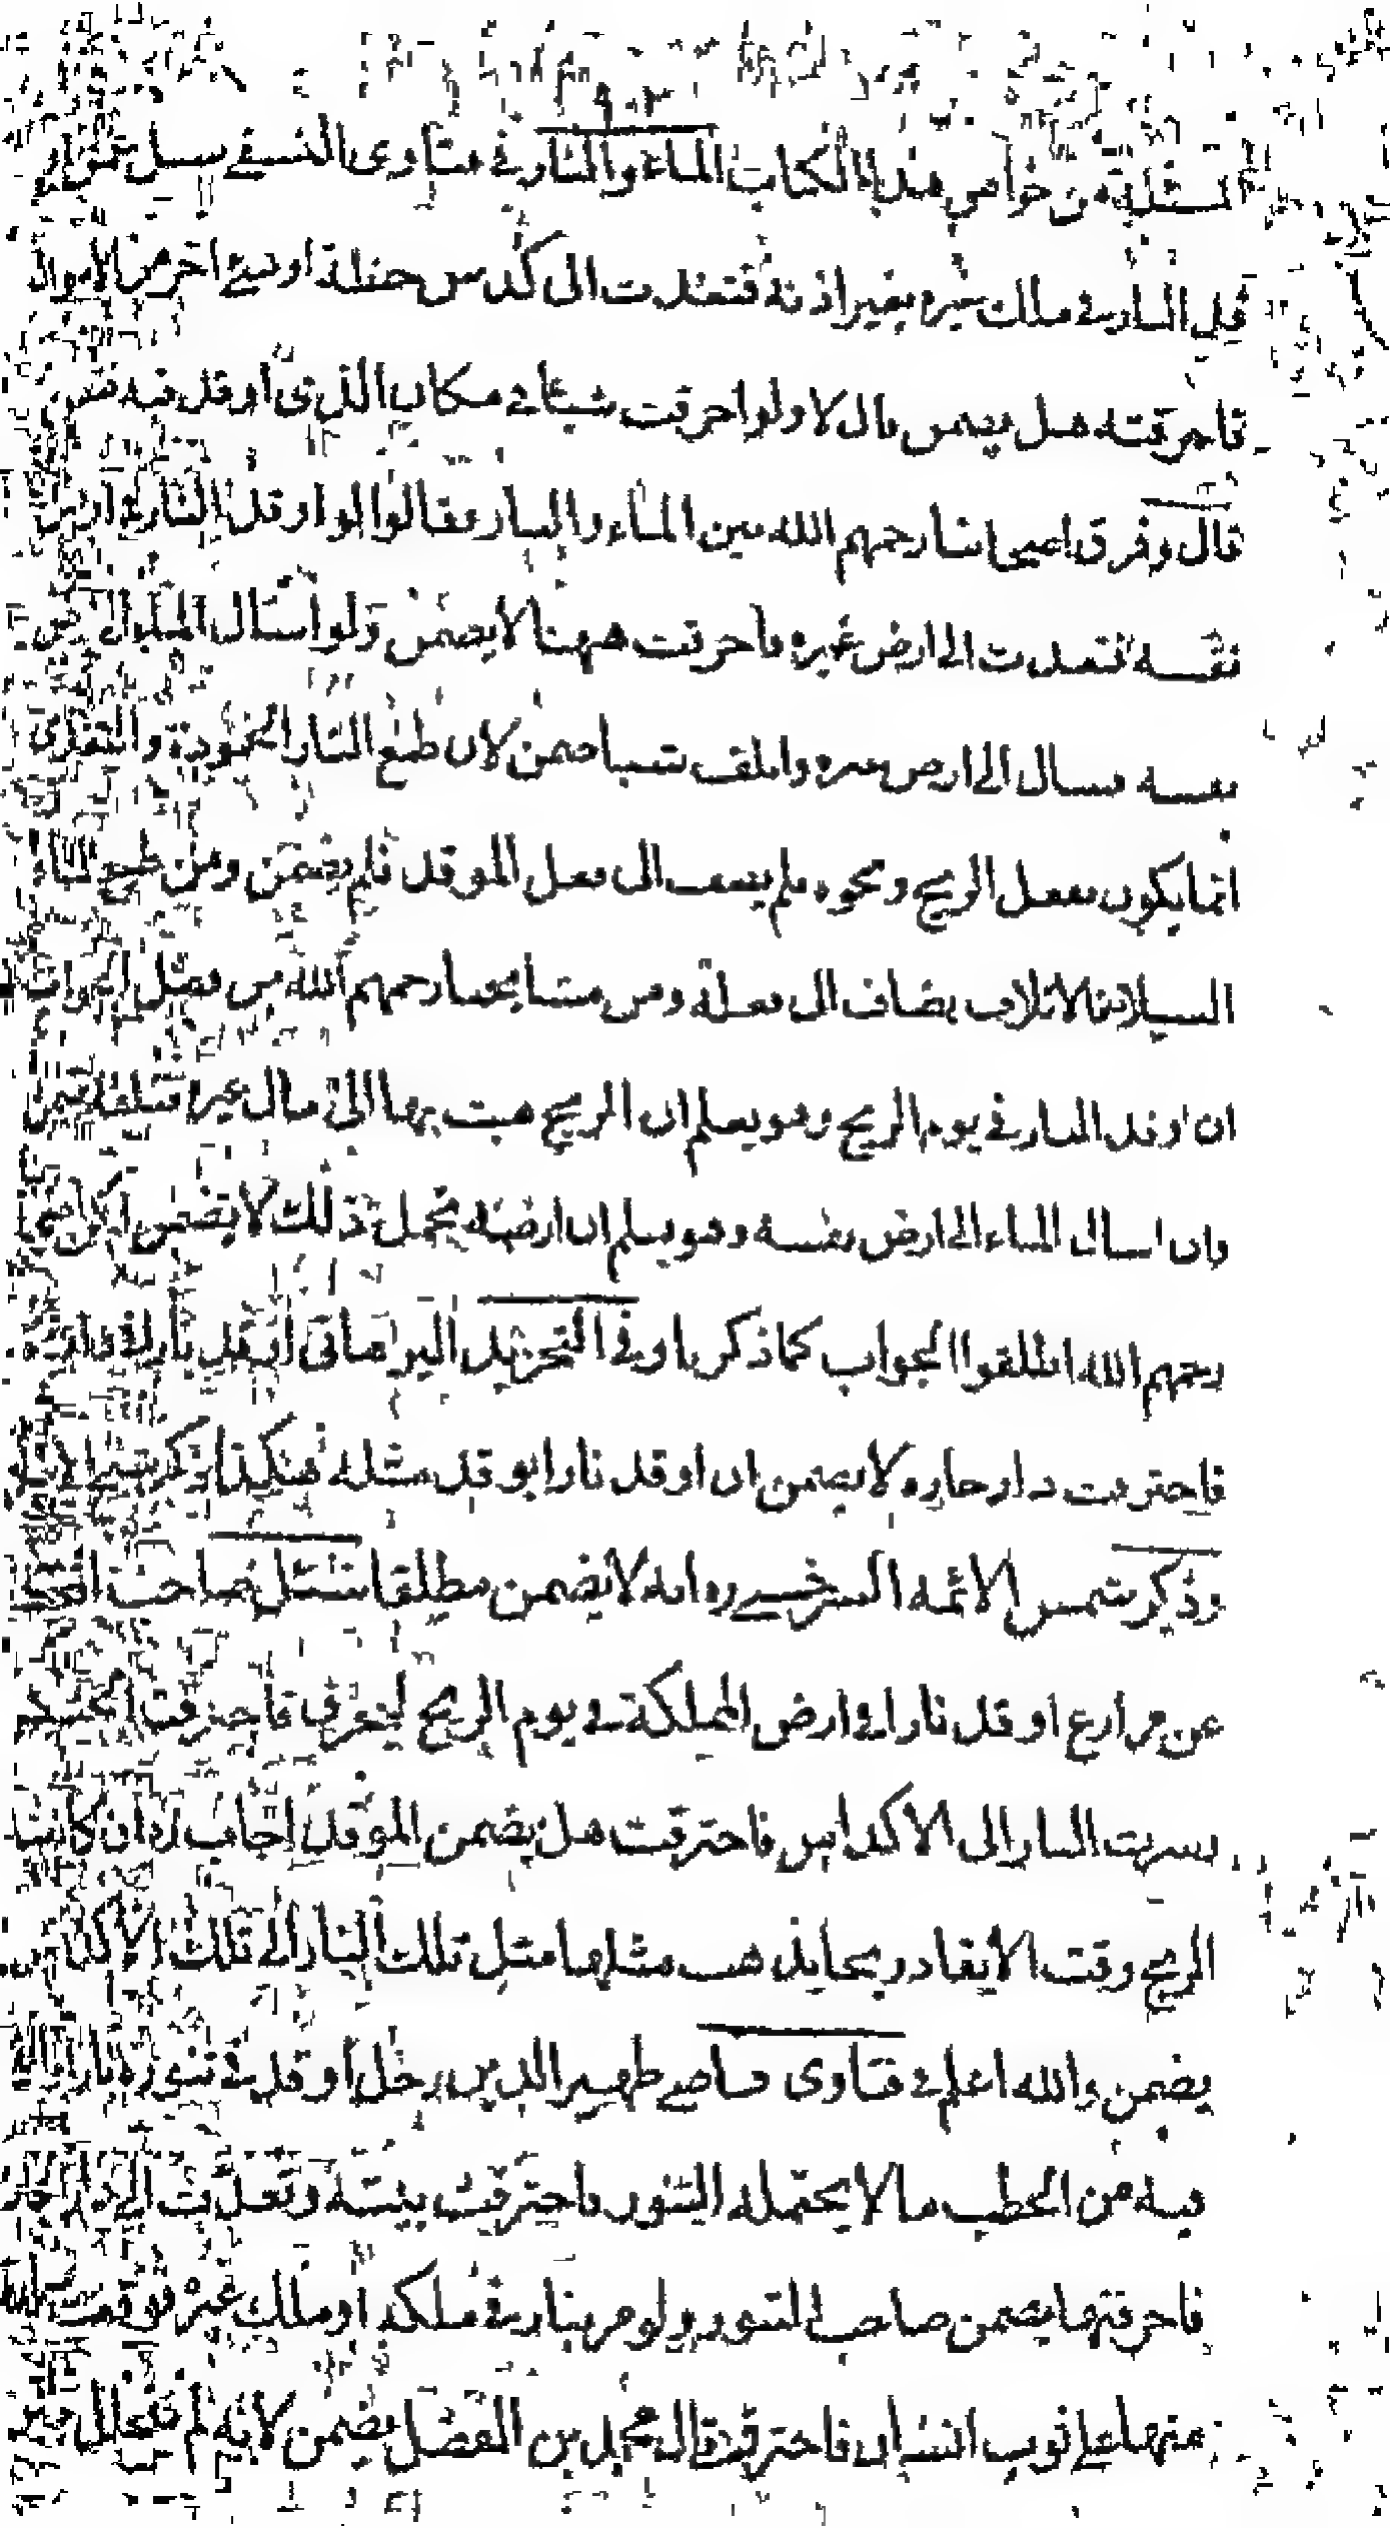 المسئلة من خواص هذا الكتاب الماء والنار في فتاوى النسفي سئل عمن اوقد
النار في ملك غيره بغير اذنه فتعدت الى كدس حنطة او شئ اخر من الاموال
فاحرقته هل يضمن قال لا ولو احرقت شيئا في مكان الذي اوقد فيه ضمن
قال وفرق اصحابنا رحمهم الله بين الماء والنار فقالوا لو اوقد النار في ارض
نفسه فتعدت الى ارض غيره فاحرقت شيئا لا يضمن ولو اسال الماء الى ارض
نفسه فسال الى ارض غيره واتلف شيئا ضمن لان طبع النار الخمود والتعدى
انما يكون بفعل الريح ونحوه فلم يضف الى فعل الموقد فلم يضمن ومن طبع الماء
السيلان فالاتلاف يضاف الى فعله ومن مشايخنا رحمهم الله من فصل الجواب
ان اوقد النار في يوم الريح وهو يعلم ان الريح هبت بها الى مال غيره فتتلفه يضمن
وان اسال الماء الى ارض نفسه وهو يعلم ان ارضه تحمل ذلك لا يضمن
رحمهم الله اطلقوا الجواب كما ذكرنا وفي التجريد البرهاني اوقد نارا
فاحترقت دار جاره لا يضمن ان اوقد نارا يوقد مثله هكذا ذكر
وذكر شمس الائمة السرخسي انه لا يضمن مطلقا سئل صاحب المحيط
عن مزارع اوقد نارا في ارض المملكة في يوم الريح فاحترقت
سرت النار الى الاكداس فاحترقت هل يضمن الموقد اجاب ان كانت
الريح وقت الايقاد ريحا يذهب مثلها مثل تلك النار الى تلك الاكداس
يضمن والله اعلم في فتاوى قاضي ظهير الدين رجل اوقد في تنوره نارا والقى
فيه من الحطب ما لا يحتمله التنور فاحترقت بيته وتعدت الى دار جاره
فاحرقتها يضمن صاحب التنور ولو مر بنار في ملكه او ملك غيره فوقعت
منها على ثوب انسان فاحترقت قال محمد بن الفضل يضمن لانه لم يتخلل